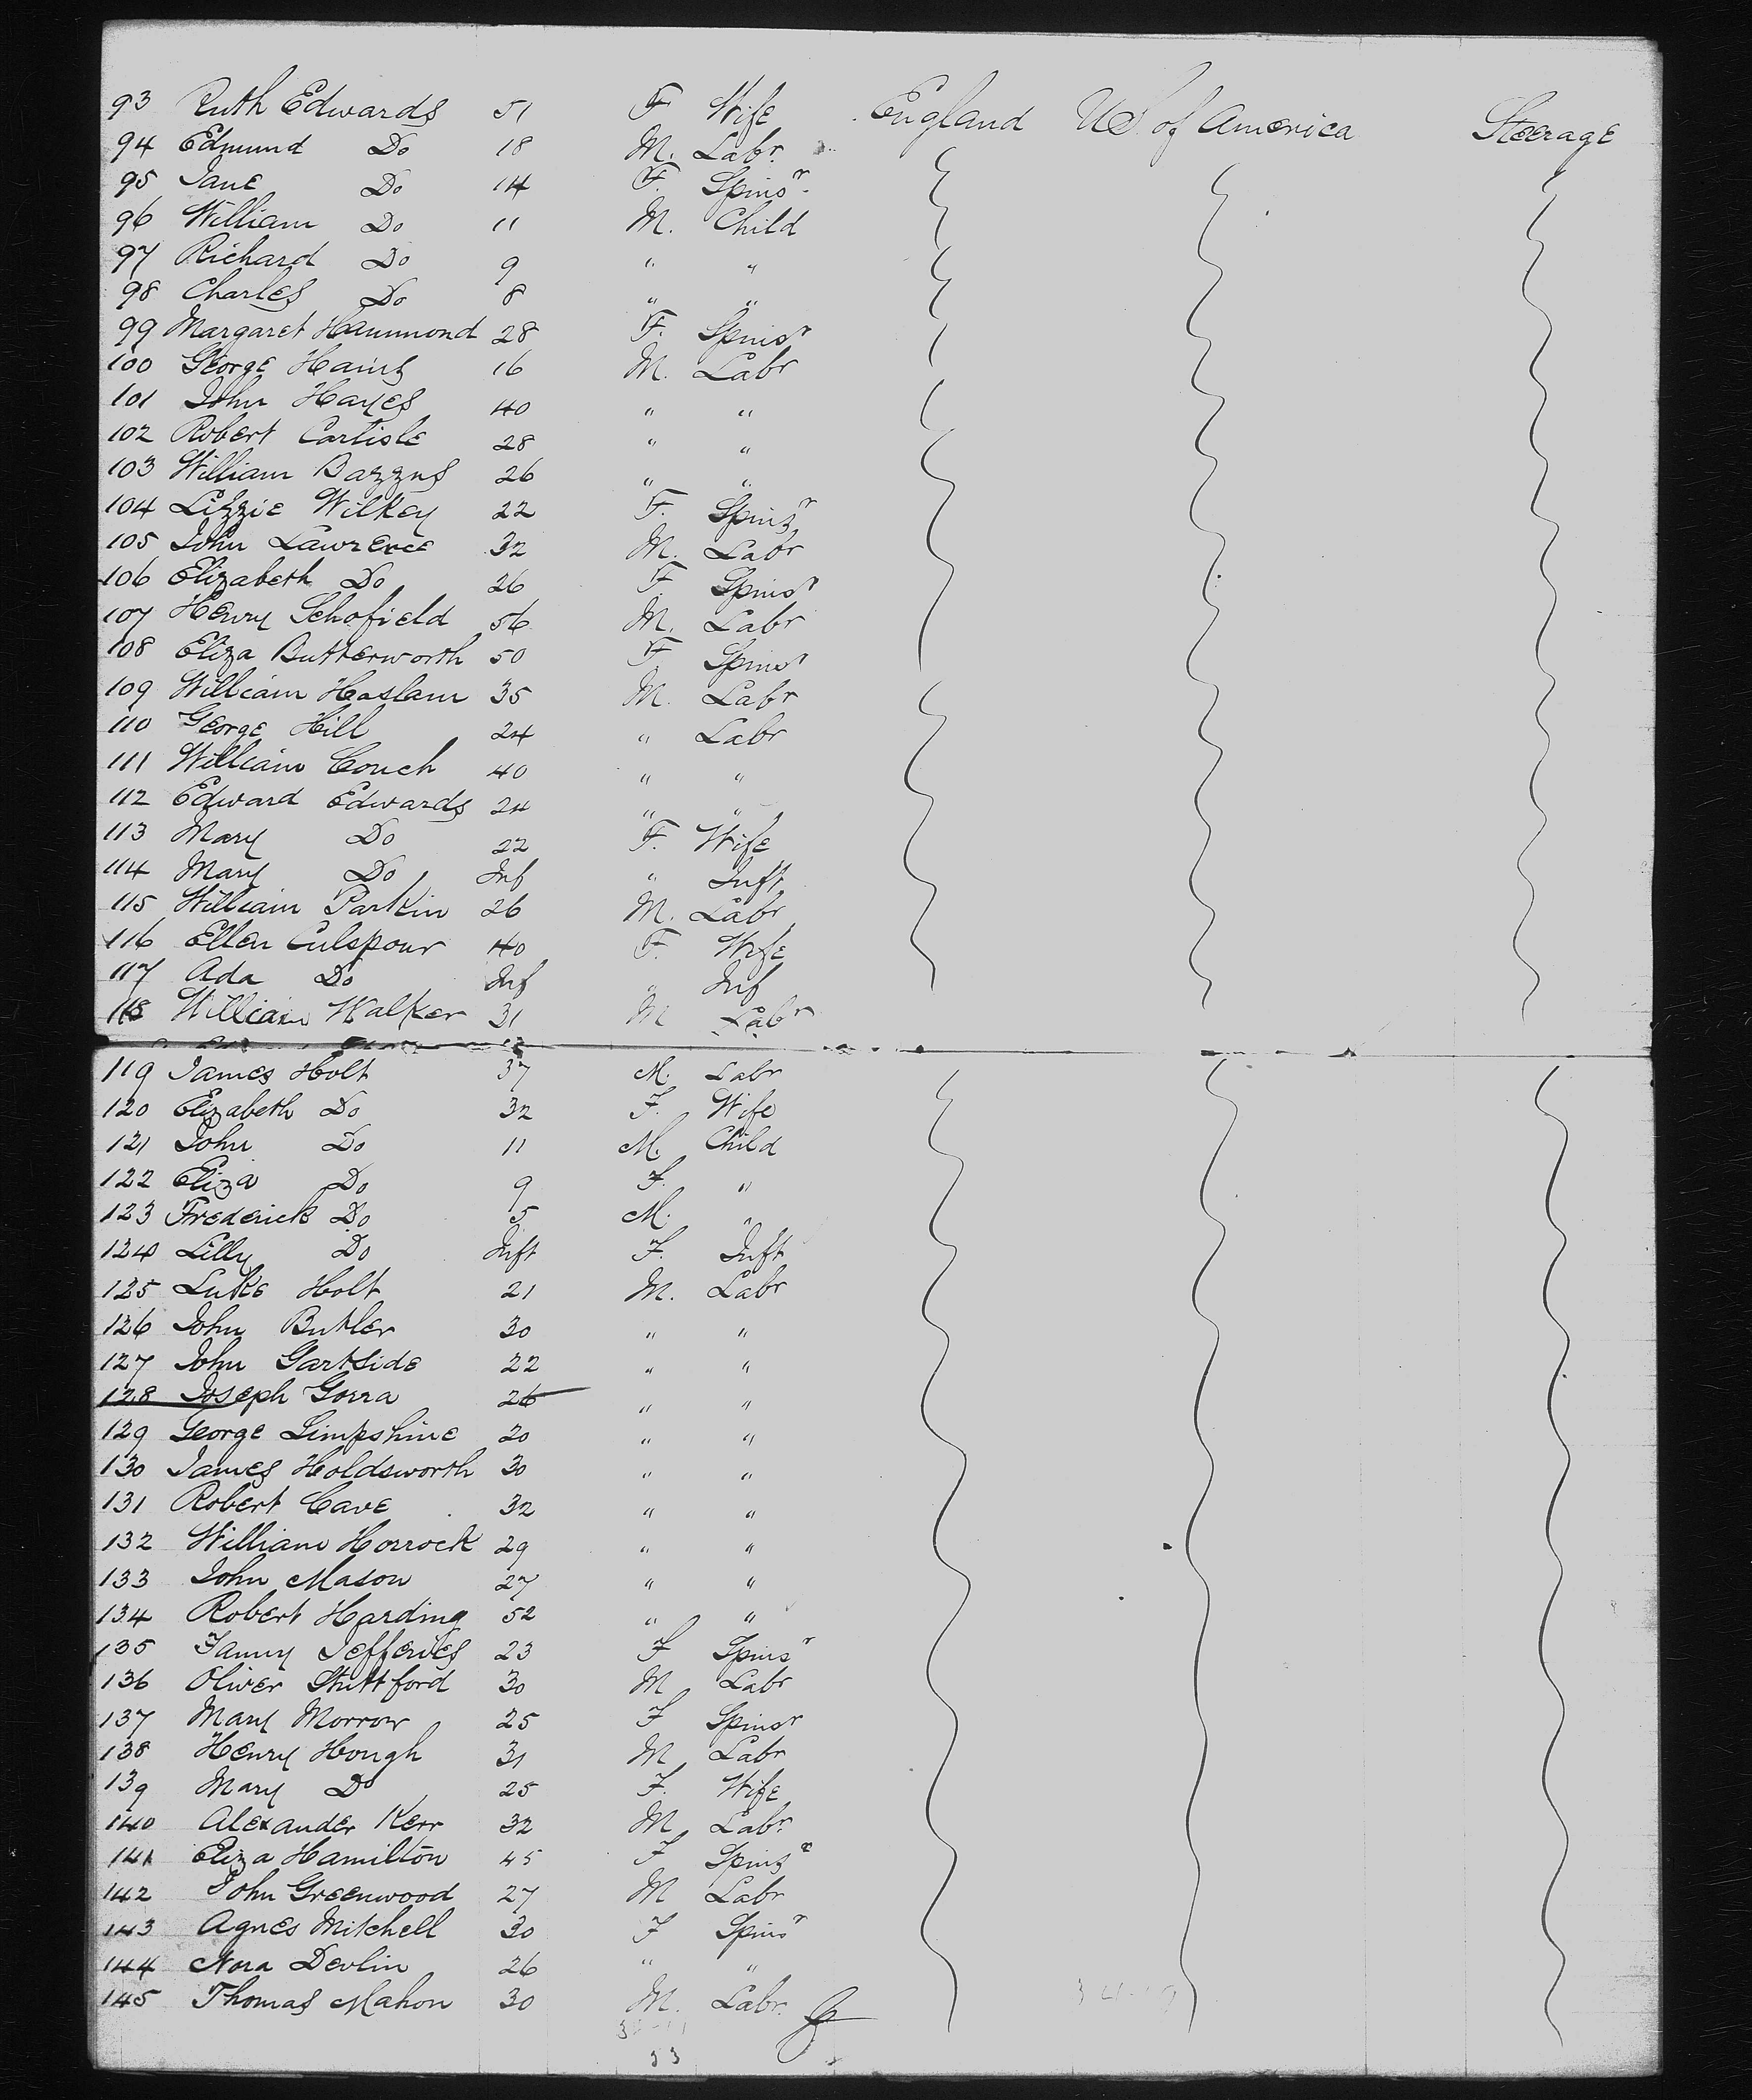 93 Ruth Edwards 51 F Wife England US of America Steerage
94 Edmund Do 18 M. Labr.
95 Jane Do 14 F. Spinsr.
96 William Do 11 M. Child
97 Richard Do 9 " "
98 Charles Do 8 " "
99 Margaret Hammond 28 F. Spinsr
100 George Hains 16 M. Labr
101 John Hayes 40 " "
102 Robert Carlisle 28 " "
103 William 26 " "
104 Lizzie Wilkey 22 F. Spinsr
105 John Lawrence 32 M. Labr
106 Elizabeth Do 26 F. Spinsr
107 Henry Schofield 56 M. Labr
108 Eliza Butterworth 50 F. Spinsr
109 William Haslam 35 M. Labr
110 George Hill 24 " Labr
111 William Couch 40 " "
112 Edward Edwards 24 " "
113 Mary Do 22 F. Wife
114 Mary Do Inf " Inft
115 William Parkin 26 M. Labr
116 Ellen Culspour 40 F. Wife
117 Ada Do Inf " Inf
118 William Walker 31 M Labr
119 James Holt 37 M. Labr
120 Elizabeth Do 32 F. Wife
121 John Do 11 M. Child
122 Eliza Do 9 F. "
123 Frederick Do 5 M. "
124 Lilly Do Inft F. Inft
125 Luke Holt 21 M. Labr
126 John Butler 30 " "
127 John Gartside 22 " "
128 Joseph Gorra 26 " "
129 George Limpshine 20 " "
130 James Holdsworth 30 " "
131 Robert Cave 32 " "
132 William Horrock 29 " "
133 John Mason 27 " "
134 Robert Harding 52 " "
135 Fanny Jefferies 23 F Spinsr
136 Oliver Stuttford 30 M Labr
137 Mary Morrow 25 F Spinsr
138 Henry Hough 31 M Labr
139 Mary Do 25 F. Wife
140 Alexander Kerr 32 M Labr.
141 Eliza Hamilton 45 F Spinsr
142 John Greenwood 27 M Labr
143 Agnes Mitchell 30 F Spinsr
144 Nora Devlin 26 " "
145 Thomas Mahon 30 M. Labr.